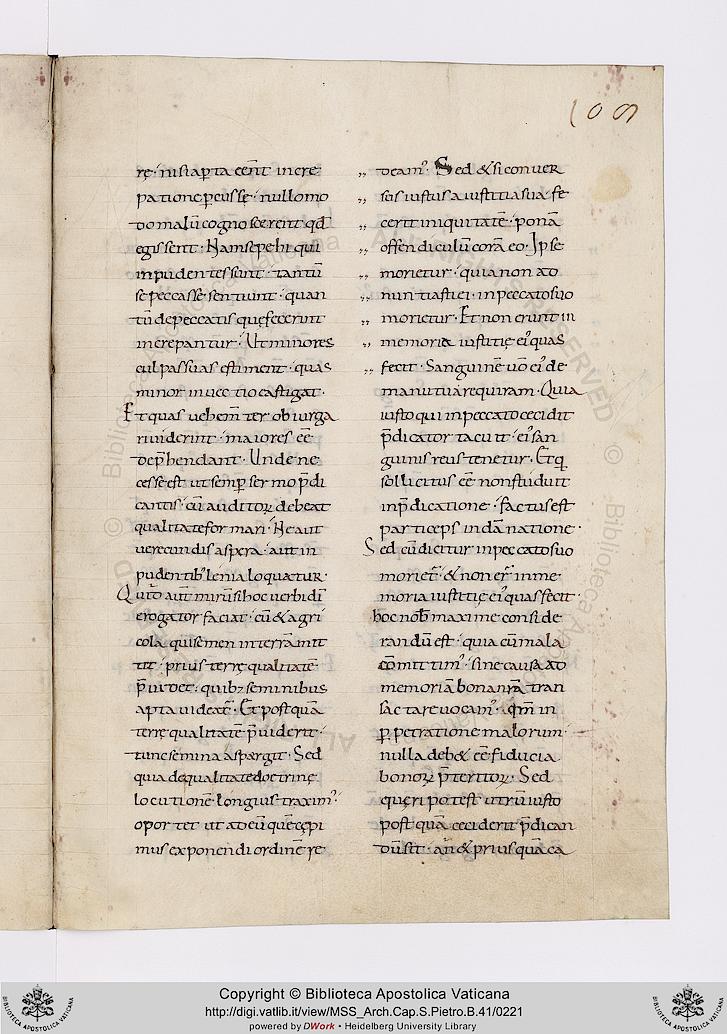 109
rę · nisi aperta eēnt increˉ
patione ꝑcussę · nullomo
do malū cognoscerent qđ
egissent · Nam sepe hi qui
inpudentes sunt · tantū
se peccasse sentiunt · quan
tū de peccatis quę fecerunt
increpantur · Ut minores
culpas suas estiment · quas
minor inuectio castigat ·
Et quas uehem̄ter obiurga
ri uiderint · maiores eē
dep̄hendant · Unde ne
cesse est ut semꝑ sermo p̄di
cantis · cū auditorū debeat
qualitate formari · Ne aut
uerecundis aspera · aut in
pudentibꝰ lenia loquatur ·
Quid aut̄ mirū si hoc uerbi dī
erogator faciat · cū & agri
cola qui semen in terrā mit
tit · prius terrę qualitatē
p̄uidet · quibꝫ seminibus
apta uideat̄ · Et postquā
terrę qualitatē p̄uiderit ·
tunc semina aspargit · Sed
quia de qualitate doctrinę
locutionē longius traximꝰ ·
oportet ut ad eū quē cępi
mus exponendi ordinē re
,, deamꝰ · Sed & si conuer
,, sus iustus a iustitia sua fe
,, cerit iniquitatē · ponā
,, offendiculū corā eo · Ipse
,, morietur · quia non ad
,, nuntiasti ei · in peccato suo
,, morietur · Et non erunt in
,, memoria iustitię eiꝰ quas
,, fecit · Sanguinē uō eiꝰ de
manu tua requiram · Quia
iusto qui in peccato cecidit
p̄dicator tacuit · eiꝰ san
guinis reus tenetur · Et q
sollicitus eē non studuit
in p̄dicatione · factus est
particeps in dānatione ·
Sed cū dicitur in peccato suo
moriet̄ · & non er̄ in me
moria iustitię eiꝰ quas fecit ·
hoc nob̄ maxime conside
randū est · quia cū mala
cōmittimꝰ · sine causa ad
memoriā bona nr̄a tran
sacta reuocamꝰ · qm̄ in
ꝑpetratione malorum ·
nulla deb& eē fiducia
bonoꝝ p̄teritoꝝ · Sed
queri potest utrū iusto
postquā ceciderit p̄dican
dū sit · an & priusquā ca
Copyright © Biblioteca Apostolica Vaticana
http://digi.vatlib.it/view/MSS_Arch.Cap.S.Pietro.B.41/0221
powered by DWork • Heidelberg University Library
BIBLIOTECA APOSTOLICA VATICANA
BIBLIOTECA APOSTOLICA VATICANA